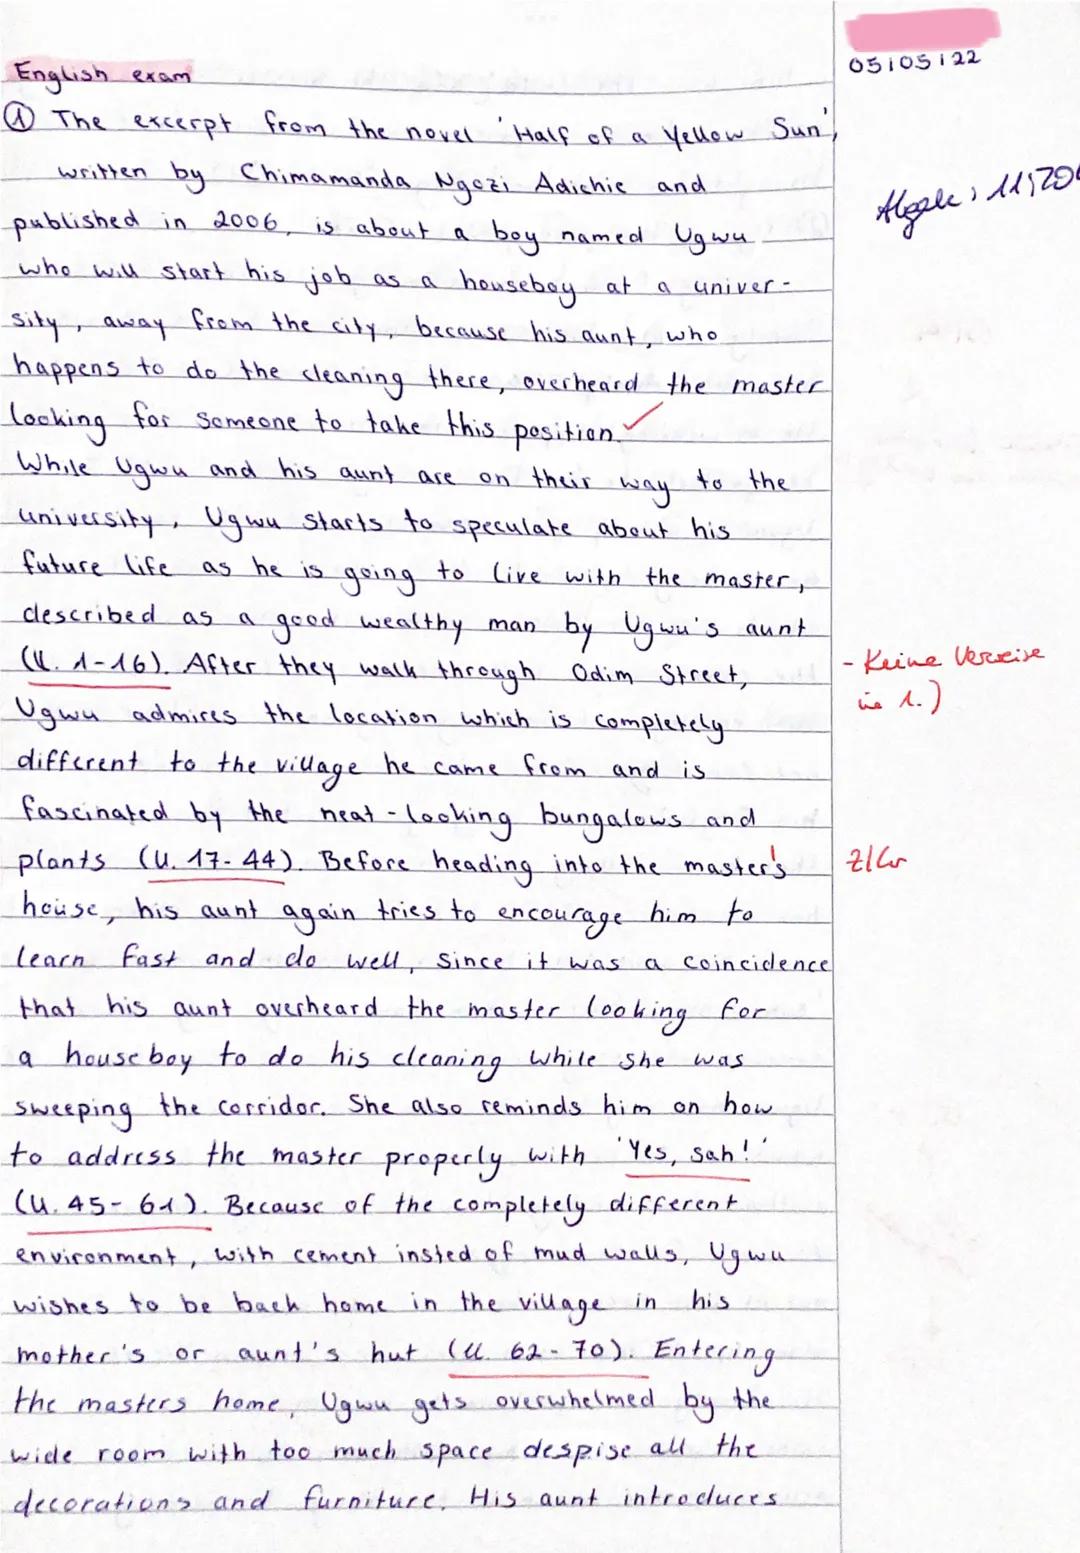 05105122
English exam
① The excerpt from the novel 'Half of a Yellow Sun',
written by Chimamanda Ngozi Adichie and
published in 2006, is about a boy named Ugwu
who will start his job as a houseboy at a univer-
sity, away from the city, because his aunt, who
happens to do the cleaning there, overheard the master
looking for someone to take this position. ✓
While Ugwu and his aunt are on their way to the
university, Ugwu starts to speculate about his
future life as he is going to live with the master,
described as a good wealthy man by Ugwu's aunt
(ll. 1-16). After they walk through Odim Street,
- Keine Verweise
in 1.)
Ugwu admires the location which is completely
different to the village he came from and is
fascinated by the neat-looking bungalows and
plants (ll. 17-44). Before heading into the master's
Z/Gr
house, his aunt again tries to encourage him to
learn fast and do well, since it was a coincidence
that his aunt overheard the master looking for
a houseboy to do his cleaning while she was
sweeping the corridor. She also reminds him on how
to address the master properly with 'Yes, sah!'
(ll. 45-61). Because of the completely different
environment, with cement insted of mud walls, Ugwu
wishes to be back home in the village in his
mother's or aunt's hut (ll. 62-70). Entering
the masters home, Ugwu gets overwhelmed by the
wide room with too much space despise all the
decorations and furniture. His aunt introduces